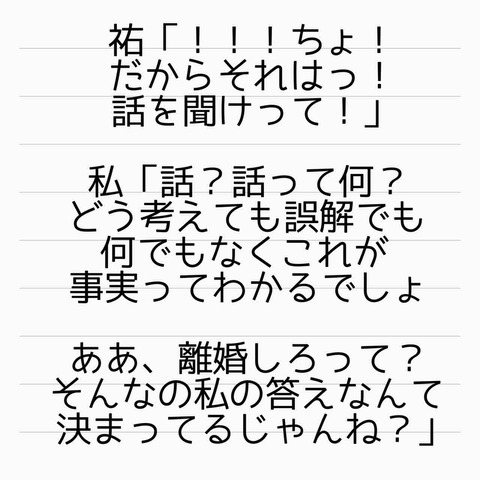 祐「！！！ちょ！
だからそれはっ！
話を聞けって！」
私「話？話って何？
どう考えても誤解でも
何でもなくこれが
事実ってわかるでしょ
ああ、離婚しろって？
そんなの私の答えなんて
決まってるじゃんね？」